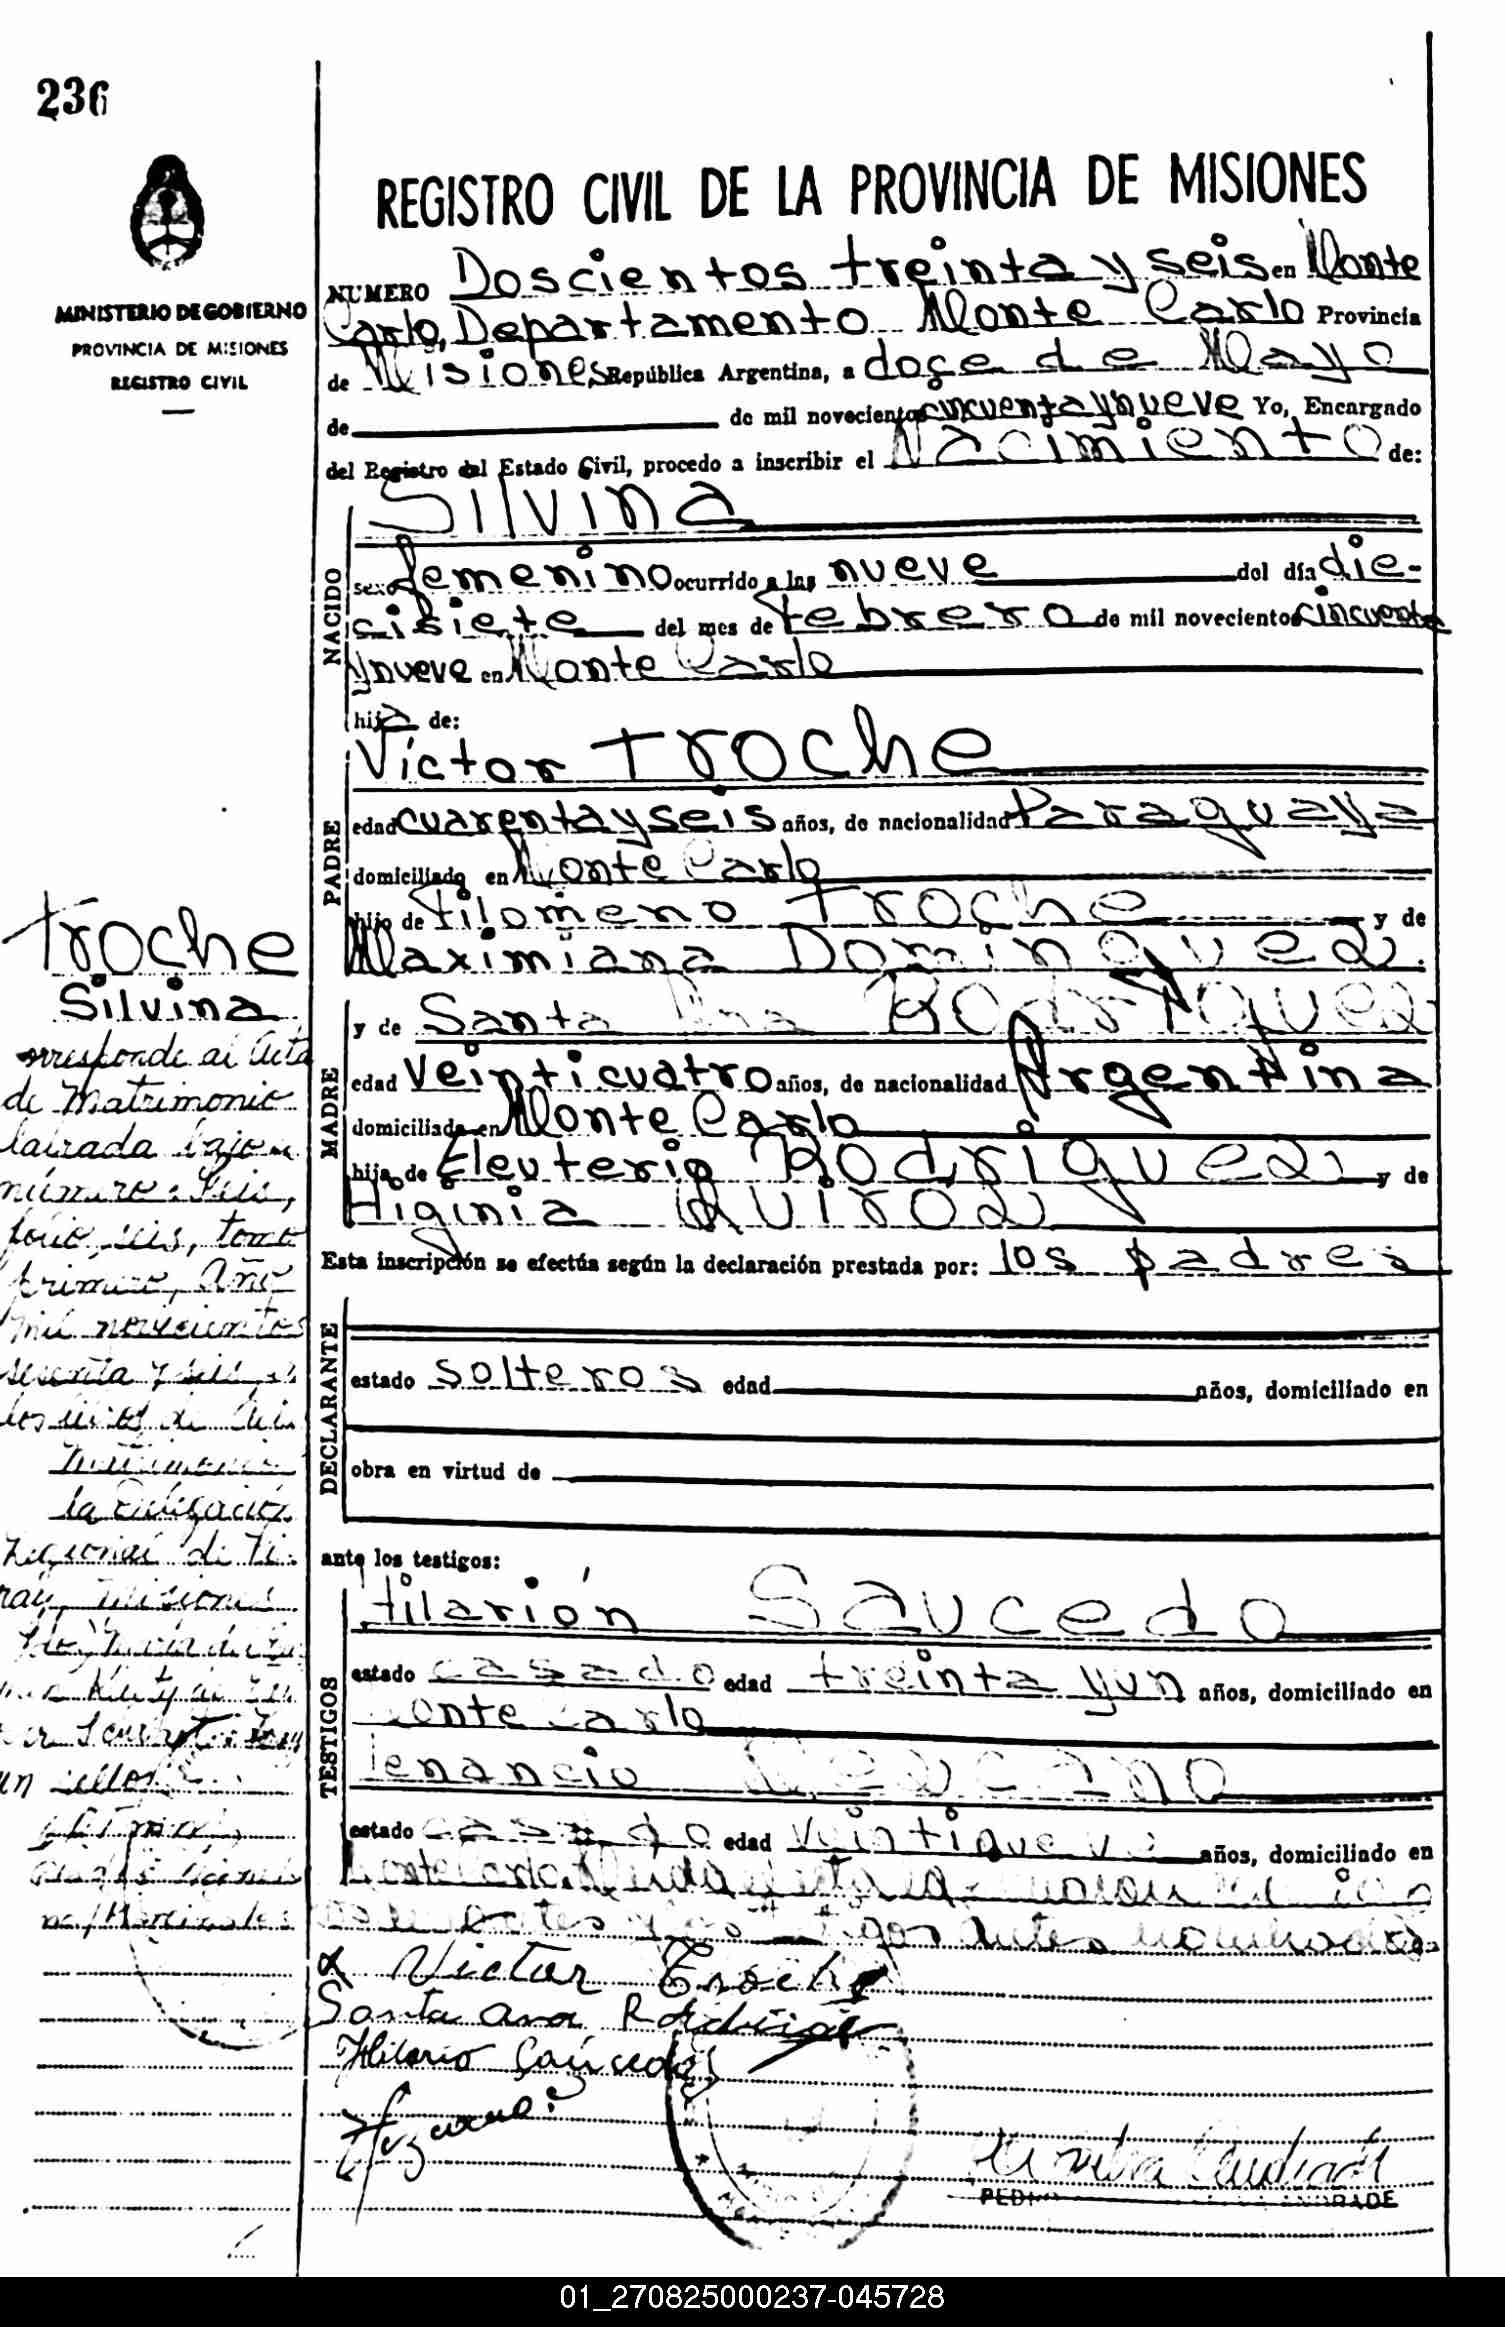 236
MINISTERIO DE GOBIERNO
PROVINCIA DE MISIONES
REGISTRO CIVIL
REGISTRO CIVIL DE LA PROVINCIA DE MISIONES
NUMERO Doscientos treinta y seis en Monte
Carlo, Departamento Monte Carlo Provincia
de Misiones República Argentina, a doce de Mayo
de de mil novecientos cincuenta y nueve Yo, Encargado
del Registro del Estado Civil, procedo a inscribir el Nacimiento de:
NACIDO
Silvina
sexo femenino ocurrido a las nueve del día die-
cisiete del mes de febrero de mil novecientos cincuenta
y nueve en Monte Carlo
hija de:
PADRE
Víctor Troche
edad cuarenta y seis años, de nacionalidad Paraguaya
domiciliado en Monte Carlo
hijo de Filomeno Troche y de
Maximiana Dominguez.
MADRE
y de Santa Ana Rodriguez
edad veinticuatro años, de nacionalidad Argentina
domiciliada en Monte Carlo
hija de Eleuterio Rodriguez y de
Higinia Quiroz
Esta inscripción se efectúa según la declaración prestada por: los padres
DECLARANTE
estado solteros edad años, domiciliado en
obra en virtud de
ante los testigos:
TESTIGOS
Hilarión Saucedo
estado casado edad treinta y un años, domiciliado en
Monte Carlo
Venancio
estado casado edad veintinueve años, domiciliado en
Monte Carlo. Leida el acta la
antes nombrados.
Victor Troche
Santa Ana
Hilario Saucedo
PEDRO ANDRADE
Troche
Silvina
orresponde al Acta
de Matrimonio
labrada bajo
número: Seis,
folio, seis, tomo
primero, Año
mil novecientos
sesenta y seis,
los libros de
Matrimonio
la Delegación
Regional de
Misiones
un sello
01_270825000237-045728